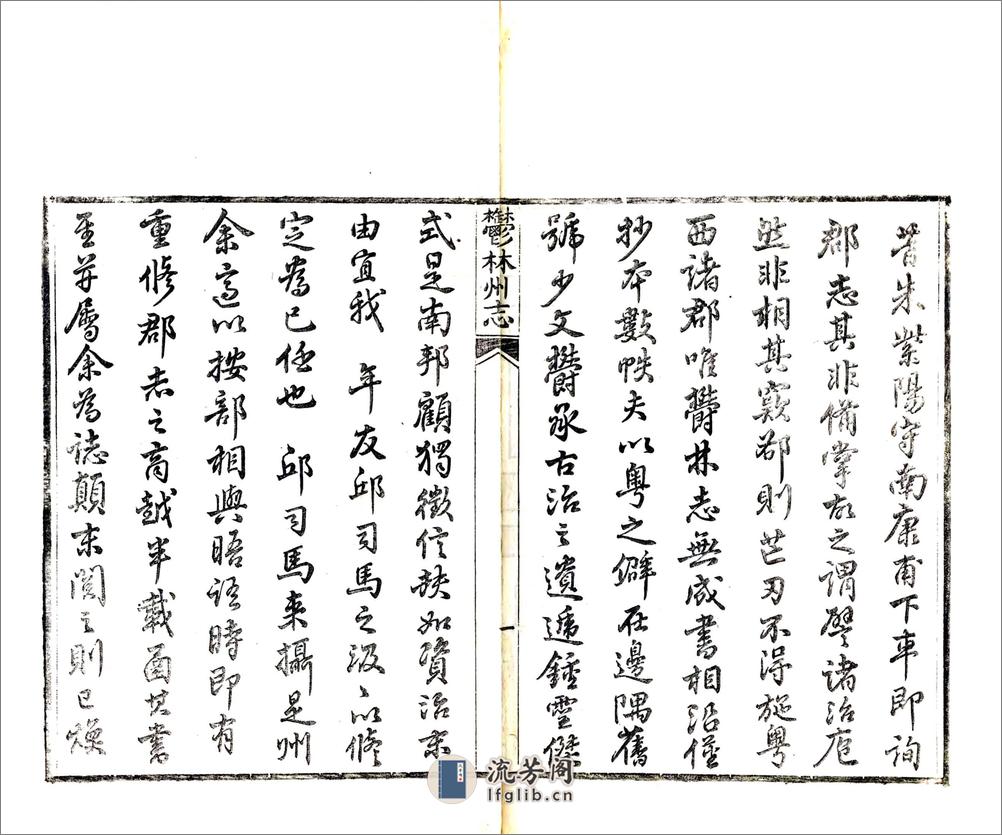 昔朱紫陽守南康甫下車即詢
郡志其非備掌故之謂譬諸治庖
然非相其窾郤則芒刃不得施粵
西諸郡唯欝林志無成書相沿僅
抄本數帙夫以粵之僻在邊隅舊
號少文欝承古治之遺遞鍾靈傑
鬱林州志
一
式是南邦顧獨徵信缺如資治末
由宜我 年友邱司馬之汲〻以修
定為己任也 邱司馬来攝是州
余適以按部相與晤語時即有
重修郡志之商越半載函其書
至并屬余為誌顛末閲之則已煥
流芳阁
lfglib.cn